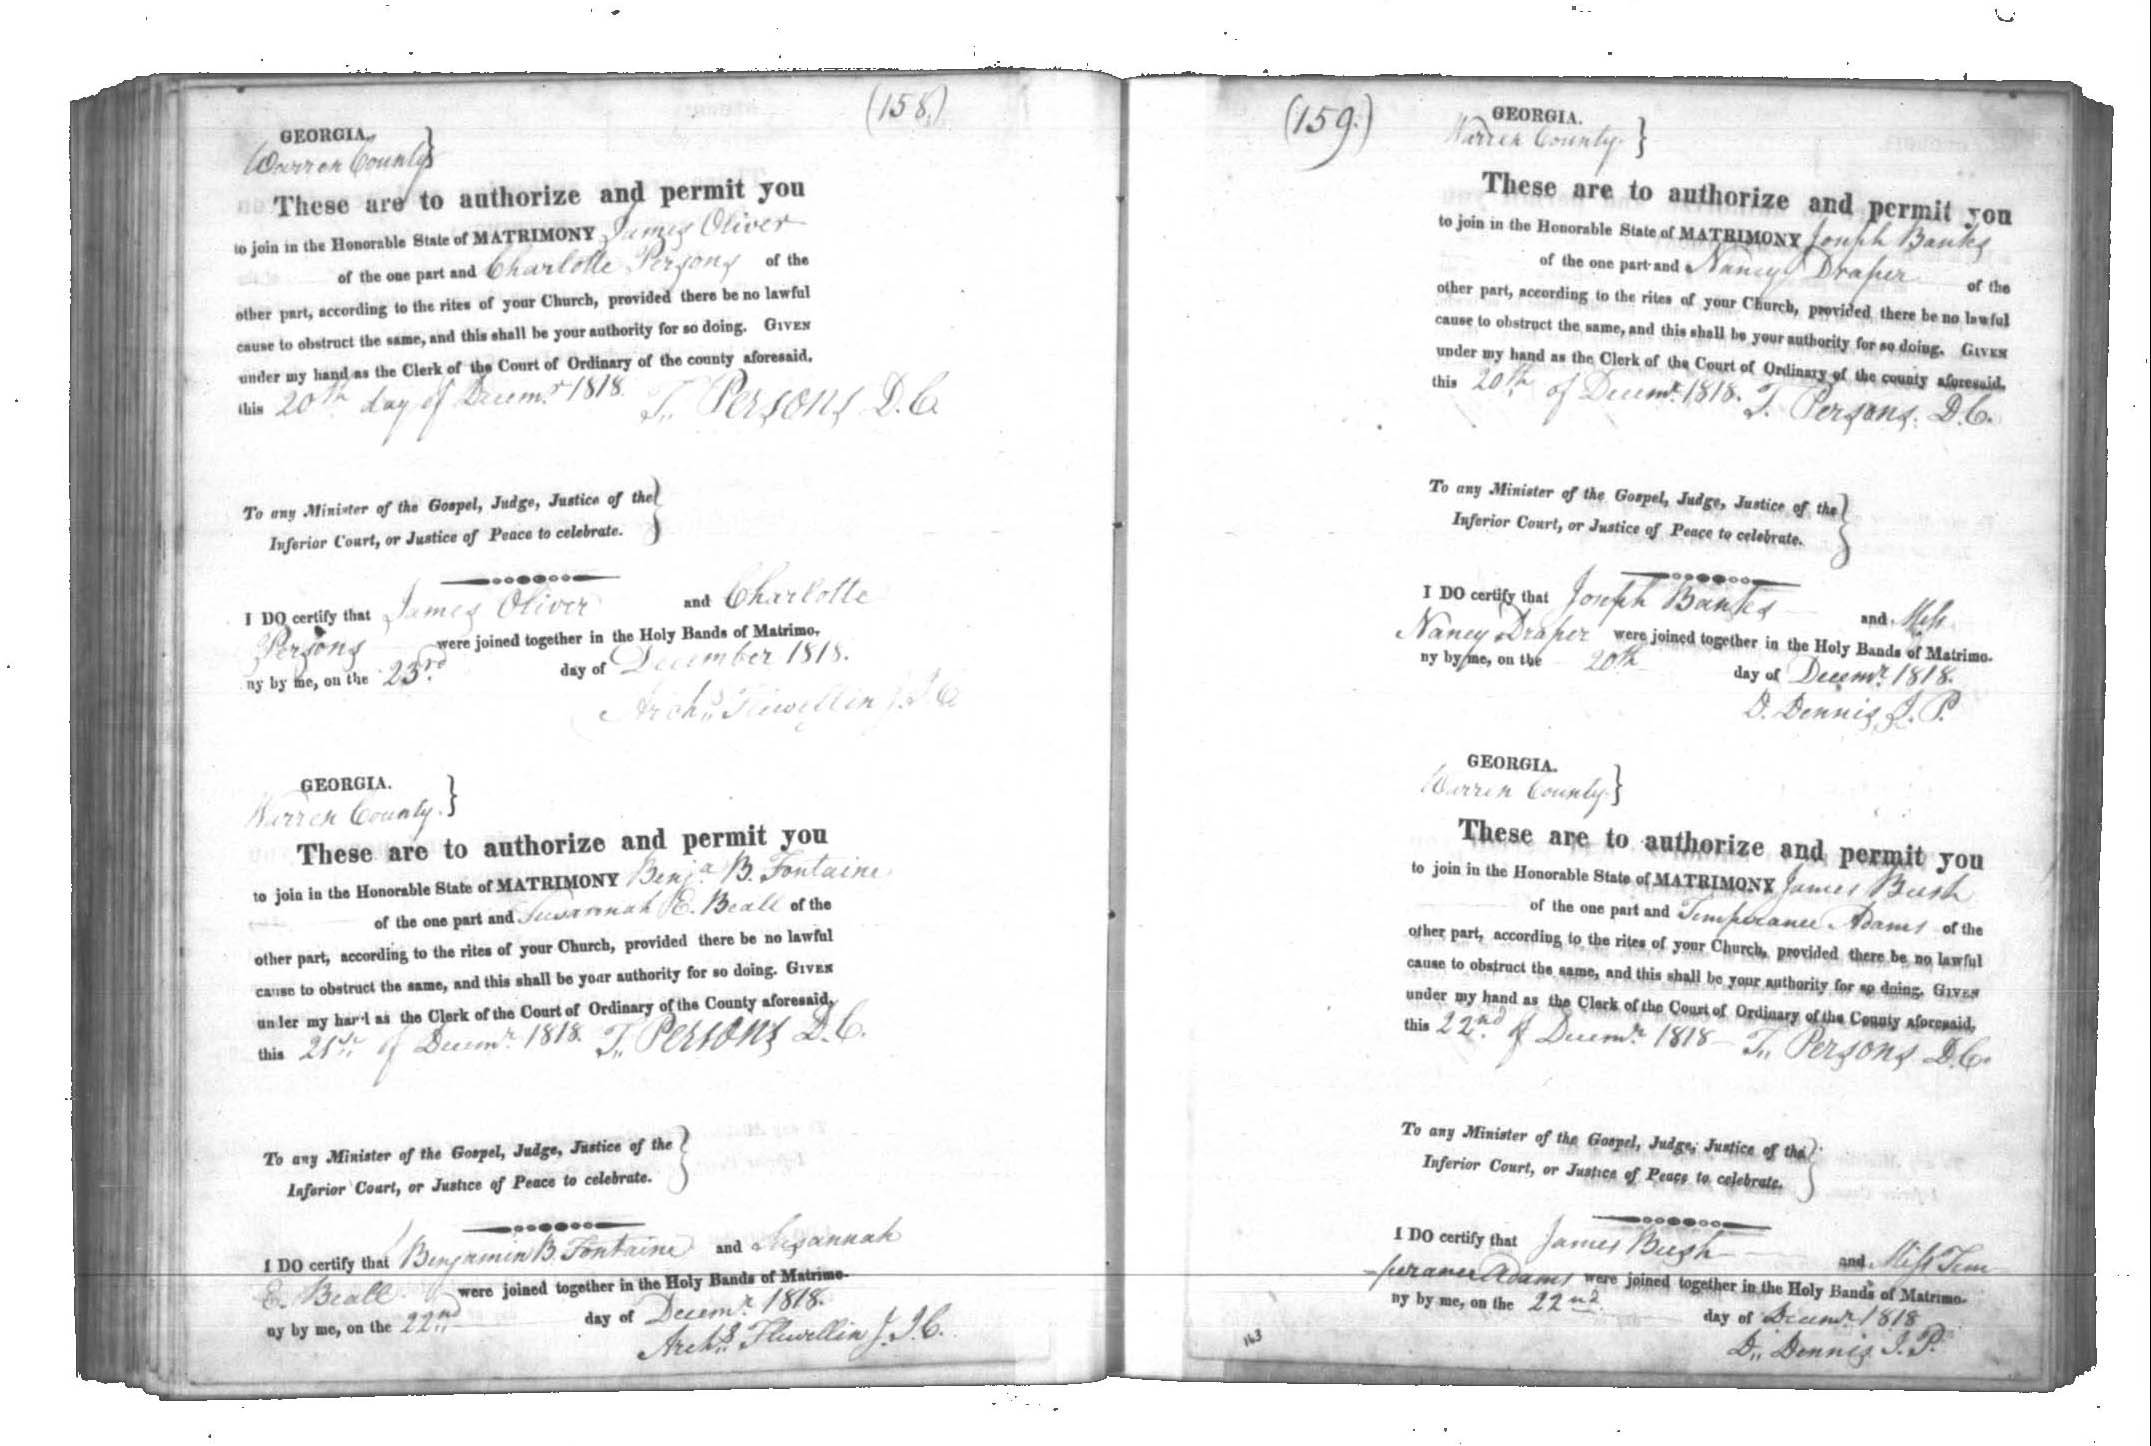 (158.)
GEORGIA.
Warren County }
These are to authorize and permit you
to join in the Honorable State of MATRIMONY James Oliver
of the one part and Charlotte Persons of the
other part, according to the rites of your Church, provided there be no lawful
cause to obstruct the same, and this shall be your authority for so doing. GIVEN
under my hand as the Clerk of the Court of Ordinary of the county aforesaid,
this 20th day of Decemr. 1818. T. Persons D.C.
To any Minister of the Gospel, Judge, Justice of the
Inferior Court, or Justice of Peace to celebrate. }
I DO certify that James Oliver and Charlotte
Persons were joined together in the Holy Bands of Matrimo-
ny by me, on the 23rd day of December 1818.
Archd. Flewellin J.I.C
GEORGIA.
Warren County. }
These are to authorize and permit you
to join in the Honorable State of MATRIMONY Benja. B. Fontaine
of the one part and Susannah E. Beall of the
other part, according to the rites of your Church, provided there be no lawful
cause to obstruct the same, and this shall be your authority for so doing. GIVEN
under my hand as the Clerk of the Court of Ordinary of the County aforesaid,
this 21st of Decemr. 1818. T. Persons D.C.
To any Minister of the Gospel, Judge, Justice of the
Inferior Court, or Justice of Peace to celebrate. }
I DO certify that Benjamin B. Fontaine and Susannah
E. Beall were joined together in the Holy Bands of Matrimo-
ny by me, on the 22nd day of Decemr. 1818.
Archd. Flewellin J.I.C.
(159.)
GEORGIA.
Warren County. }
These are to authorize and permit you
to join in the Honorable State of MATRIMONY Joseph Banks
of the one part and Nancy Draper of the
other part, according to the rites of your Church, provided there be no lawful
cause to obstruct the same, and this shall be your authority for so doing. GIVEN
under my hand as the Clerk of the Court of Ordinary of the county aforesaid,
this 20th of Decemr. 1818. T. Persons. D.C.
To any Minister of the Gospel, Judge, Justice of the
Inferior Court, or Justice of Peace to celebrate. }
I DO certify that Joseph Banks and Miss
Nancy Draper were joined together in the Holy Bands of Matrimo-
ny by me, on the 20th day of Decemr. 1818.
D. Dennis J.P.
GEORGIA.
Warren County. }
These are to authorize and permit you
to join in the Honorable State of MATRIMONY James Bush
of the one part and Temperance Adams of the
other part, according to the rites of your Church, provided there be no lawful
cause to obstruct the same, and this shall be your authority for so doing. GIVEN
under my hand as the Clerk of the Court of Ordinary of the County aforesaid,
this 22nd of Decemr. 1818 T. Persons D.C.
To any Minister of the Gospel, Judge, Justice of the
Inferior Court, or Justice of Peace to celebrate. }
I DO certify that James Bush and Miss Tem
-perance Adams were joined together in the Holy Bands of Matrimo-
ny by me, on the 22nd. day of Decemr. 1818
D. Dennis J.P.
163